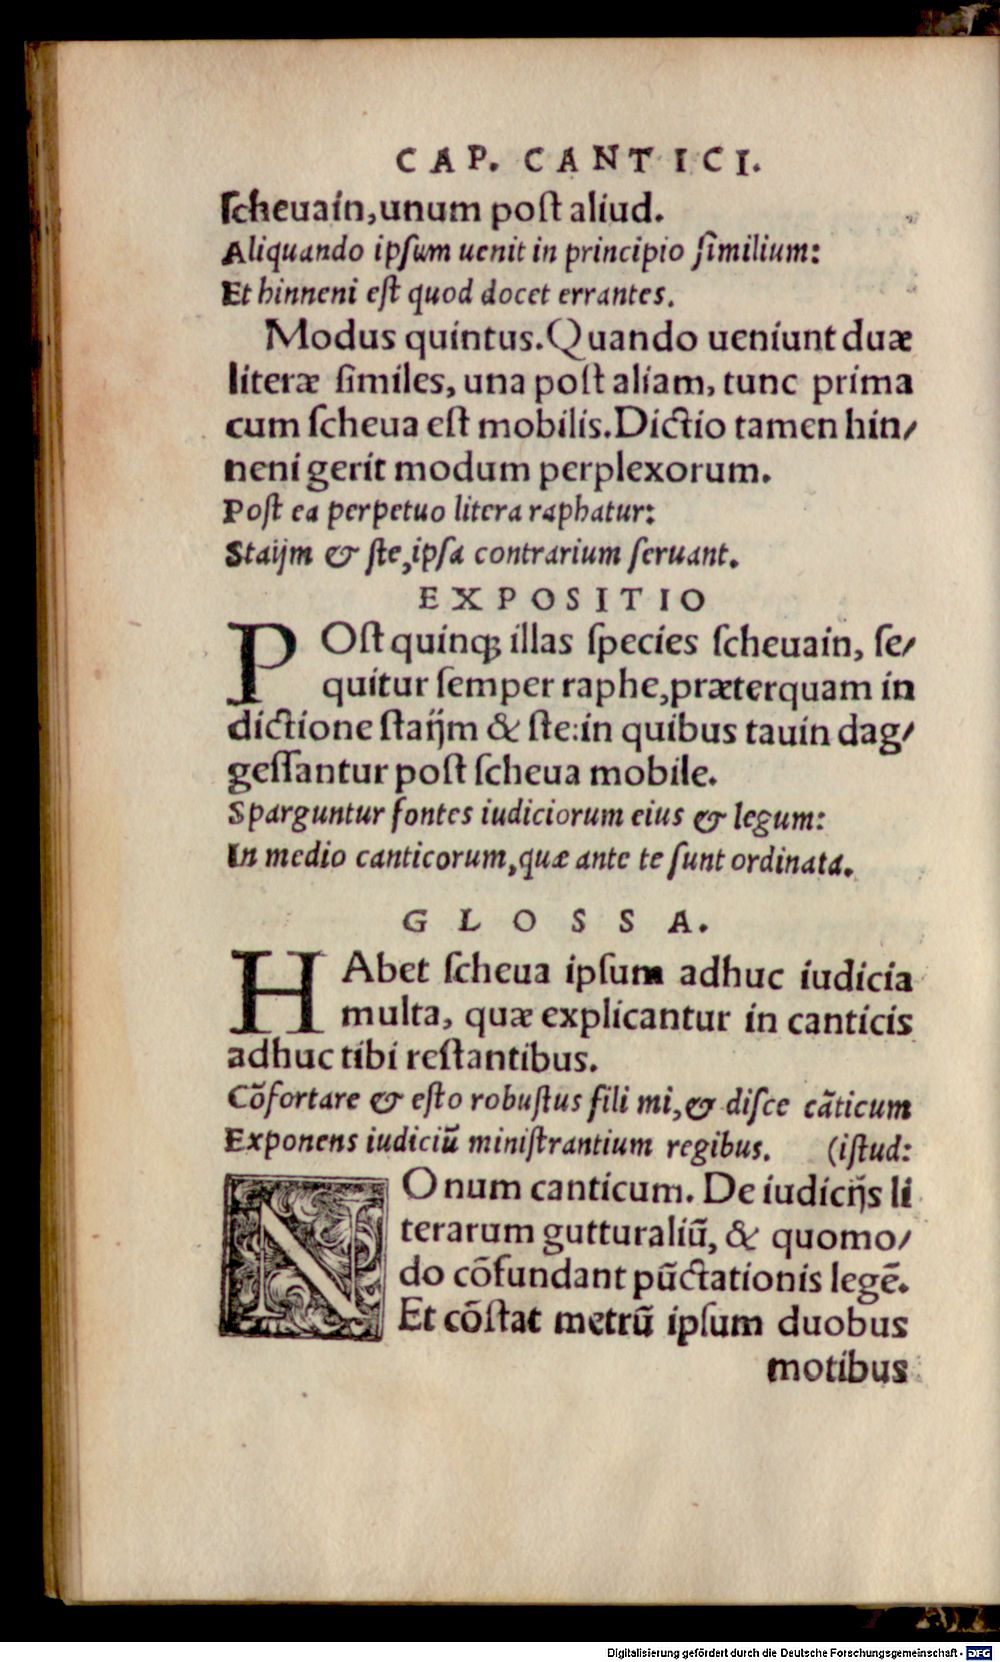 CAP. CANTICI.
ſcheuain,unum poſt aliud.
Aliquando ipſum uenit in principio ſimilium:
Et hinneni eſt quod docet errantes.
Modus quintus.Quando ueniunt duæ
literæ ſimiles, una poſt aliam, tunc prima
cum ſcheua eſt mobilis.Dictio tamen hin/
neni gerit modum perplexorum.
Poſt ea perpetuo litera raphatur:
Staijm & ſte,ipſa contrarium ſeruant.
EXPOSITIO
POſt quinq; illas ſpecies ſcheuain, ſe/
quitur ſemper raphe,præterquam in
dictione ſtaijm & ſte:in quibus tauin dag/
geſſantur poſt ſcheua mobile.
Sparguntur fontes iudiciorum eius & legum:
In medio canticorum,quæ ante te ſunt ordinata.
GLOSSA.
HAbet ſcheua ipſum adhuc iudicia
multa, quæ explicantur in canticis
adhuc tibi reſtantibus.
Cõfortare & eſto robuſtus fili mi,& diſce cãticum
Exponens iudiciũ miniſtrantium regibus. (iſtud:
NOnum canticum. De iudicijs li
terarum gutturaliũ, & quomo/
do cõfundant pũctationis legẽ.
Et cõſtat metrũ ipſum duobus
motibus
Digitalisierung gefördert durch die Deutsche Forschungsgemeinschaft - DFG